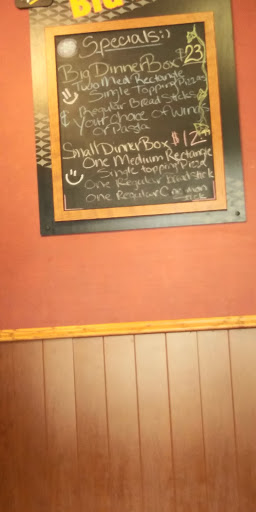 Big
Specials:)
Big Dinner Box $23
Two Med Rectangle
Single Topping Pizzas
& Regular Bread Sticks
Your choice of Wings
Or Pasta
Small Dinner Box $12
One Medium Rectangle
Single topping Pizza
One Regular breadstick
One Regular Cinnamon
Stick